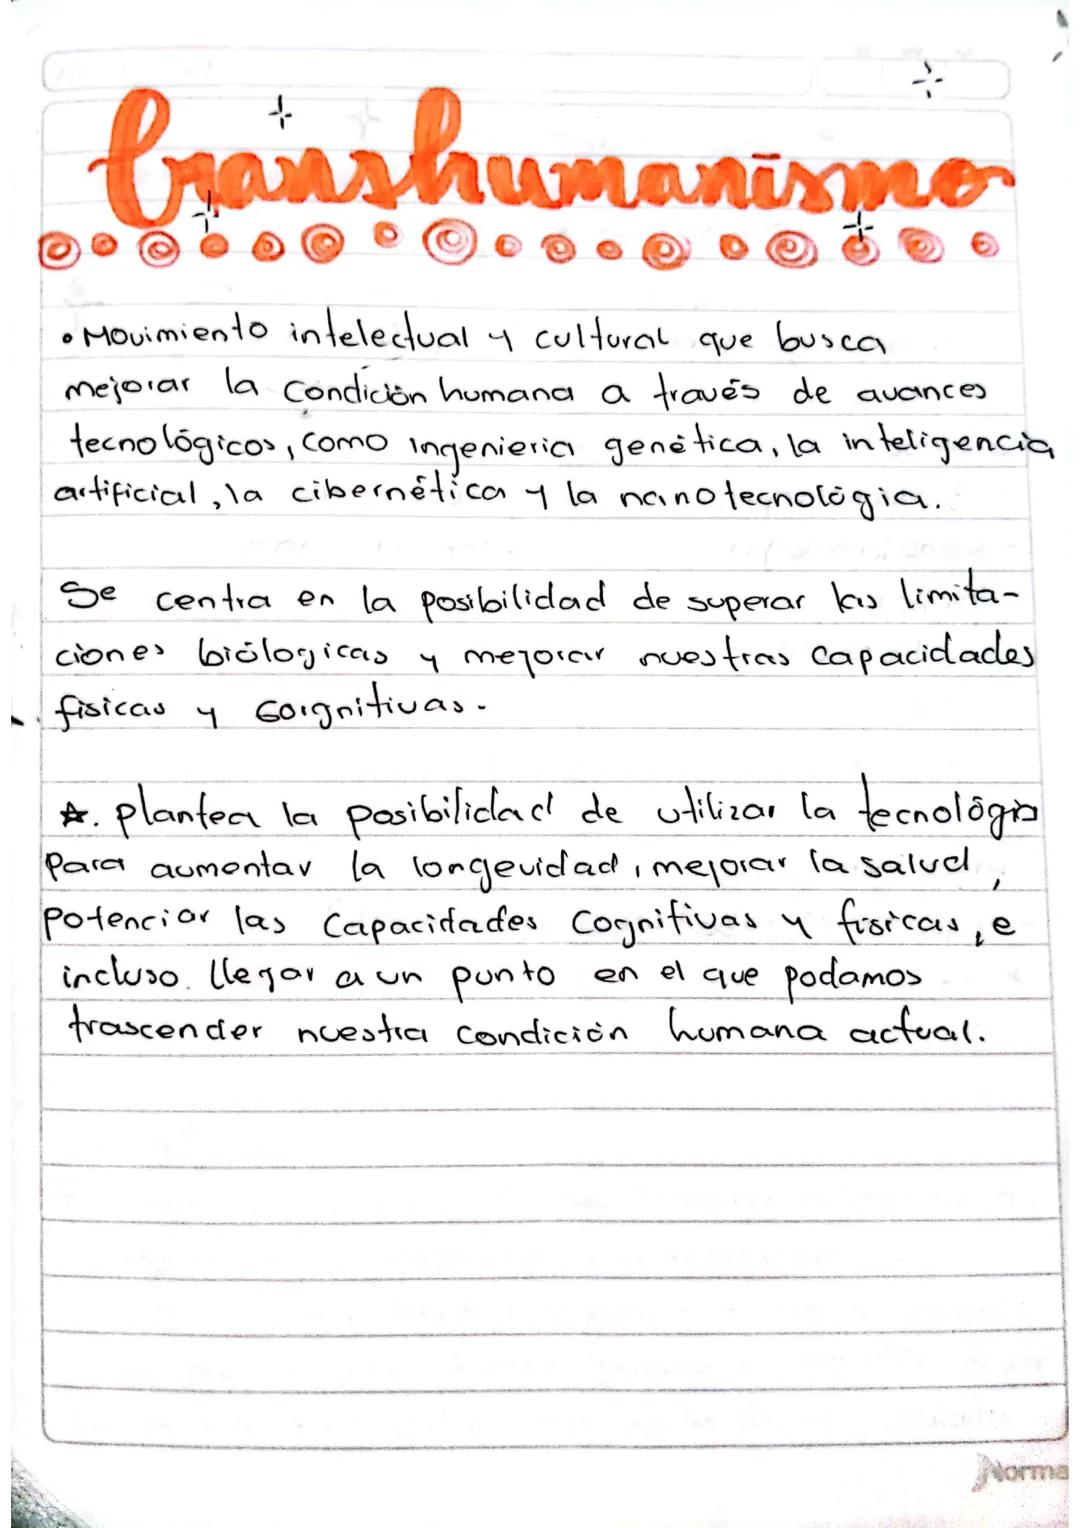 transhumanismo
• Movimiento intelectual y cultural que busca
mejorar la condición humana a través de avances
tecnológicos, como ingenieria genética, la inteligencia
artificial, la cibernética y la nanotecnológia.
Se centra en la posibilidad de superar las limita-
ciones biólogicas y mejorar nuestras capacidades
fisicas y Coignitivas.
☆. plantea la posibilidad de utilizar la tecnológia
para aumentar la longevidad, mejorar la salud,
potenciar las capacidades cognitivas y fisicas, e
incluso. llegar a un punto en el que podamos
trascender nuestra condición humana actual.
Norma